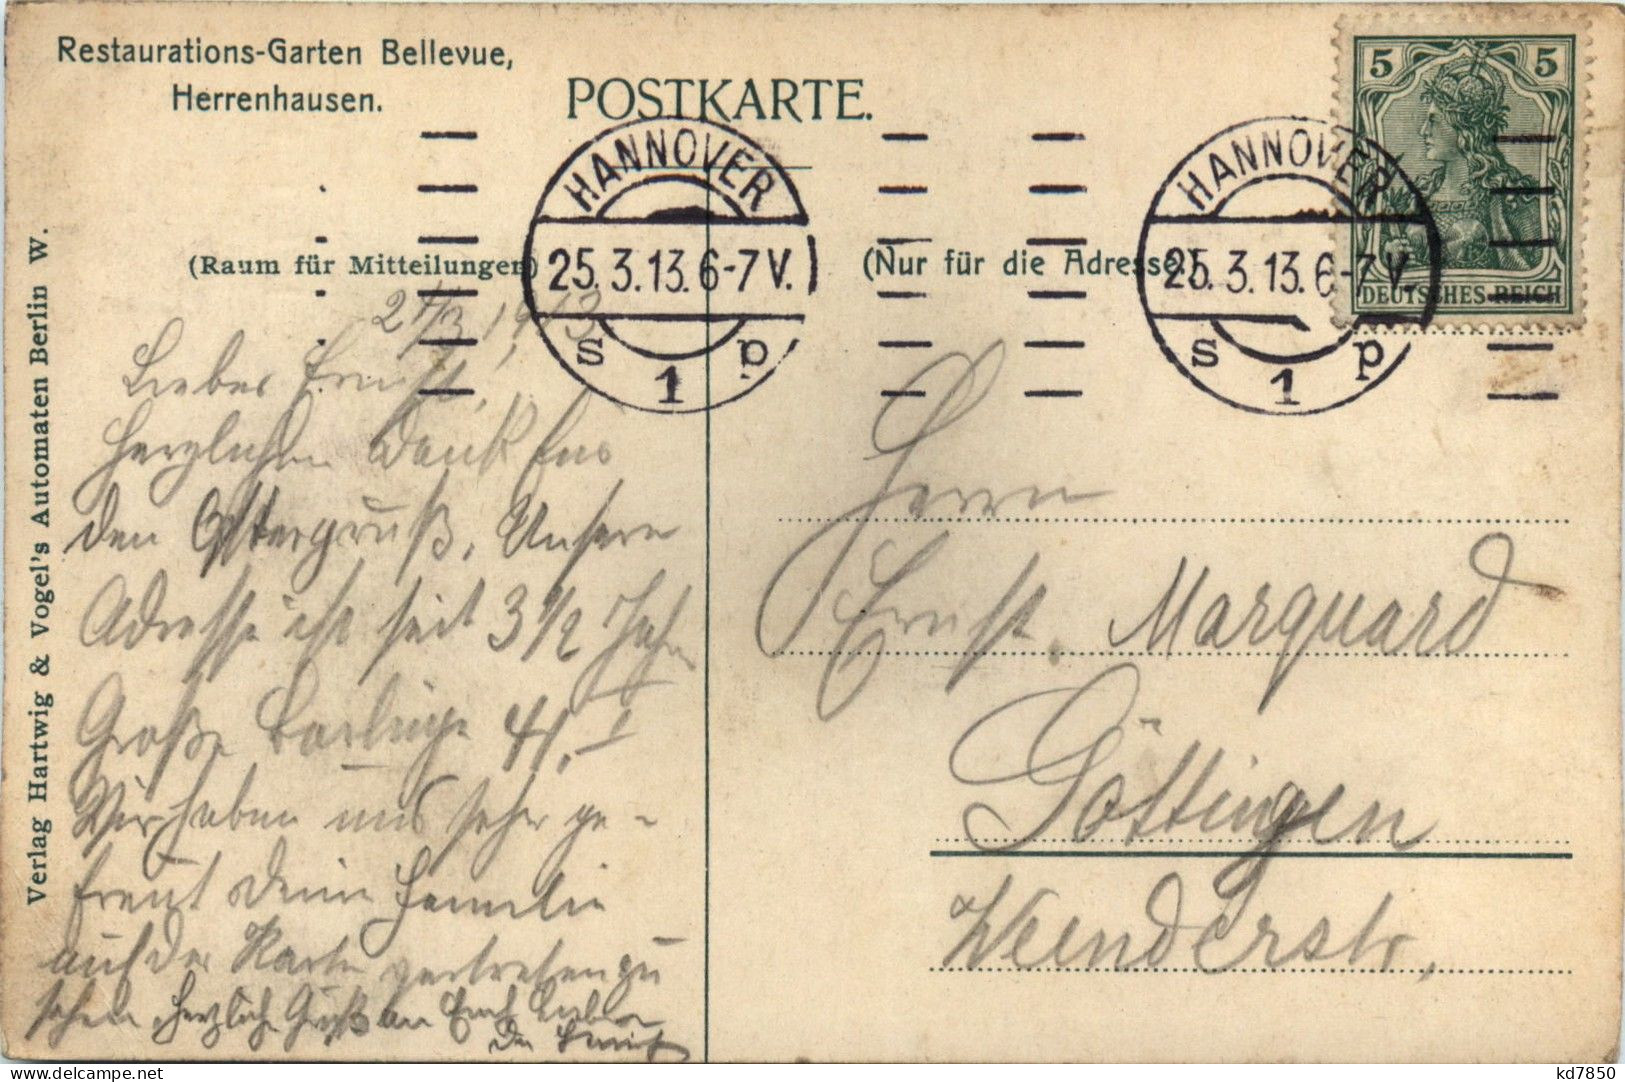 Restaurations-Garten Bellevue,
Herrenhausen.
POSTKARTE.
5 5
DEUTSCHES REICH
HANNOVER
25.3.13. 6-7 V.
s 1 p
HANNOVER
25.3.13. 6-7 V.
s 1 p
(Raum für Mitteilungen)
(Nur für die Adresse.)
Verlag Hartwig & Vogel's Automaten Berlin W.
1913
Lieber Ernst,
Herzlichen Dank für
den Ostergruß. Unsere
Adresse ist seit 3 1/2 Jahr
Große Barlinge 41, I
Wir haben uns sehr ge-
freut deine Familie
auf der Karte vertreten zu
sehen. Herzlich Gruß an Euch
Herrn
Ernst Marquard
Göttingen
Weenderstr,
kd7850